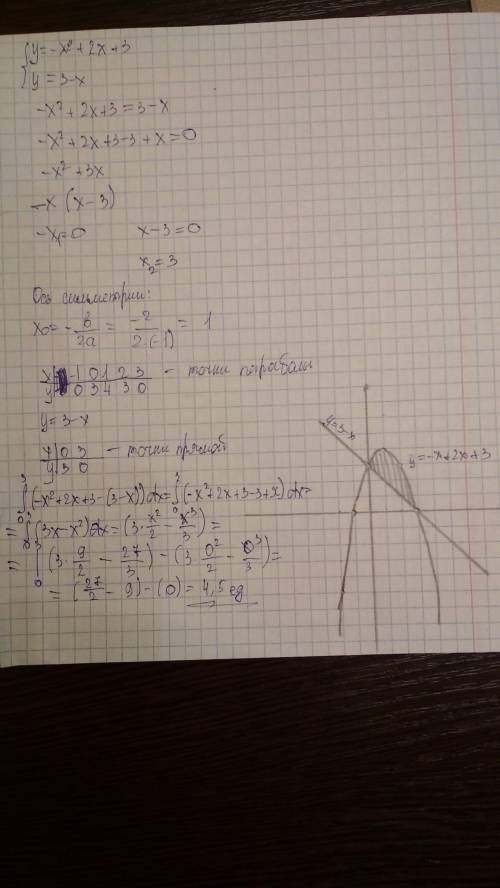 { y = -x² + 2x + 3
y = 3-x
-x² + 2x + 3 = 3 - x
-x² + 2x + 3 - 3 + x = 0
-x² + 3x
-x (x - 3)
-x₁ = 0 x - 3 = 0
x₂ = 3
Ось симметрии:
x₀ = - b/2a = -2/2·(-1) = 1
x | -1 0 1 2 3 - точки параболы
y | 0 3 4 3 0
y = 3 - x
x | 0 3 - точки прямой
y | 3 0
∫₀³ (-x² + 2x + 3 - (3-x)) dx = ∫₀³ (-x² + 2x + 3 - 3 + x) dx =
= ∫₀³ (3x - x²) dx = (3·x²/2 - x³/3) =
= ∫₀³ (3·9/2 - 27/3) - (3·0²/2 - 0³/3) =
= (27/2 - 9) - (0) = 4,5 ед
y = 3-x
y = -x + 2x + 3